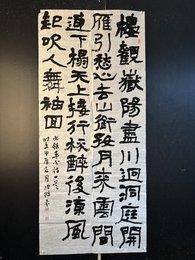 樓觀嶽陽盡川迥洞庭開
雁引愁心去山銜好月來雲間
連下榻天上接行杯醉後涼風
起吹人舞袖回
李白詩一首